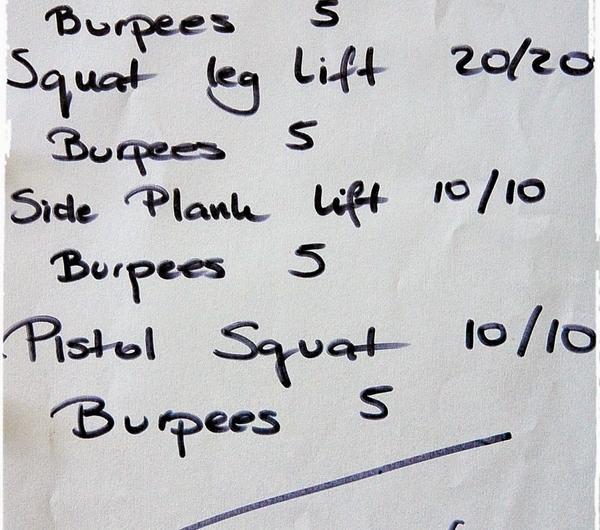 Burpees 5
Squat leg lift 20/20
Burpees 5
Side Plank lift 10/10
Burpees 5
Pistol Squat 10/10
Burpees 5